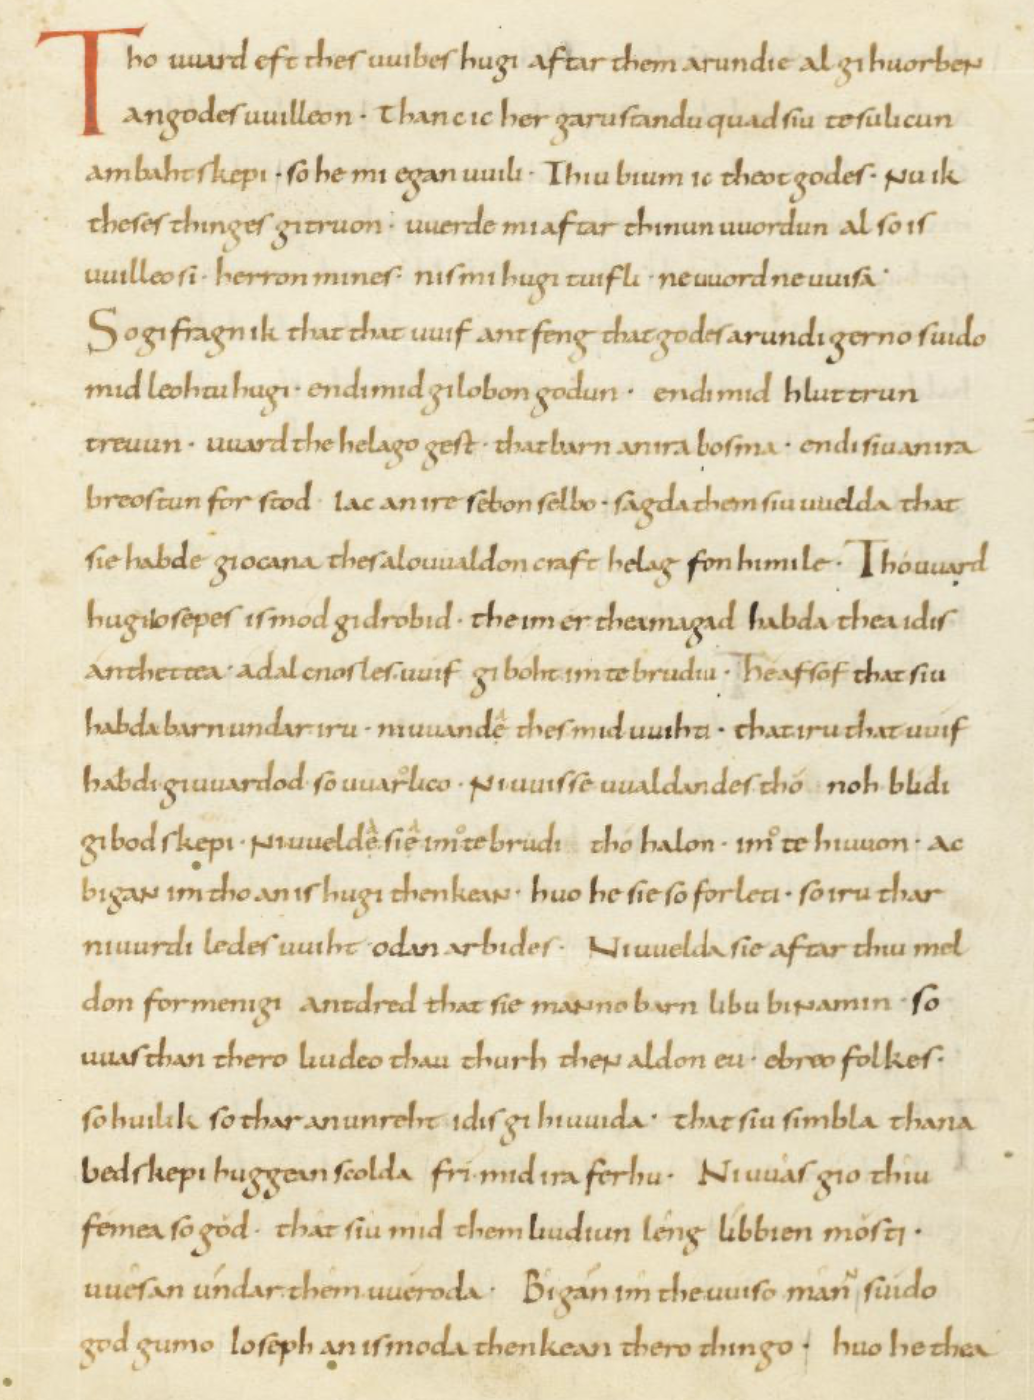 Tho uuard eft thes uuibes hugi aftar them arundie al gi huorben
an godes uuilleon · Than c ic her garu standu quad siu te sulicun
ambahtskepi · so he mi egan uuili · Thiu bium ic theot godes · Nu ik
theses thinges gitruon · uuerde mi aftar thinun uuordun al so is
uuilleo si · herron mines · nis mi hugi tuifli · ne uuord ne uuisa ·
So gi fragn ik that that uuif ant feng that godes arundi gerno suido
mid leohtu hugi · endi mid gilobon godun · endi mid hluttrun
treuun · uuard the helago gest · that barn an ira bosma · endi siu an ira
breostun for stod Iac an ire sebon selbo · sagda them siu uuelda that
sie habde giocana thes alouualdon craft helag fon himile · Tho uuard
hugi Iosepes is mod gidrobid · the im er thea magad habda thea idis
anthettea · adal cnosles uuif giboht im te brudiu · He afsof that siu
habda barn undar iru · ni uuandẽ thes mid uuihti · that iru that uuif
habdi giuuardod so uuarͦlico · Ni uuisse uualdandes tho noh blidi
gibodskepi · Ni uueldeͣ sieͣ imͦ te brudi tho halon · imͦ te hiuuon · ac
bigan im tho an is hugi thenkean · huo he sie so forleti · so iru thar
ni uurdi ledes uuiht odan arbides · Ni uuelda sie aftar thiu mel
don for menigi antdred that sie manno barn libu binamin · so
uuas than thero liudeo thau thurh then aldon eu · ebreo folkes ·
so huilik so thar an unreht idis gihiuuida · that siu simbla thana
bedskepi buggean scolda fri mid ira ferhu · Ni uuas gio thiu
femea so god · that siu mid them liudiun leng libbien mosti ·
uuesan undar them uueroda · Bigan im the uuiso mann suido
god gumo Ioseph an is moda thenkean thero thingo · huo he thea